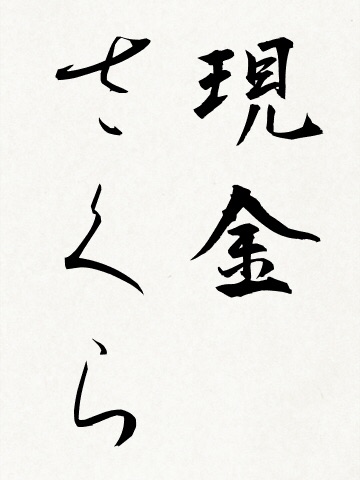 現金
さくら